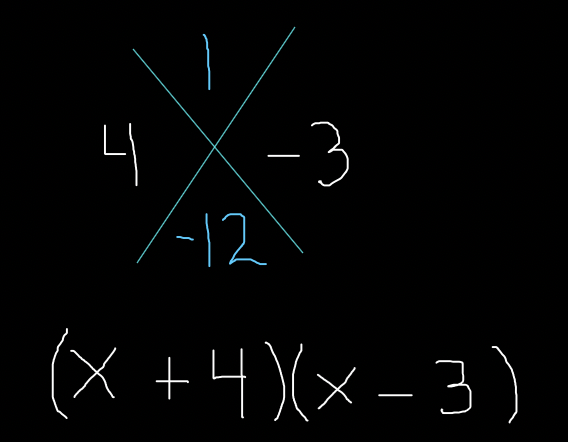 1
4 -3
-12
(x + 4)(x - 3)